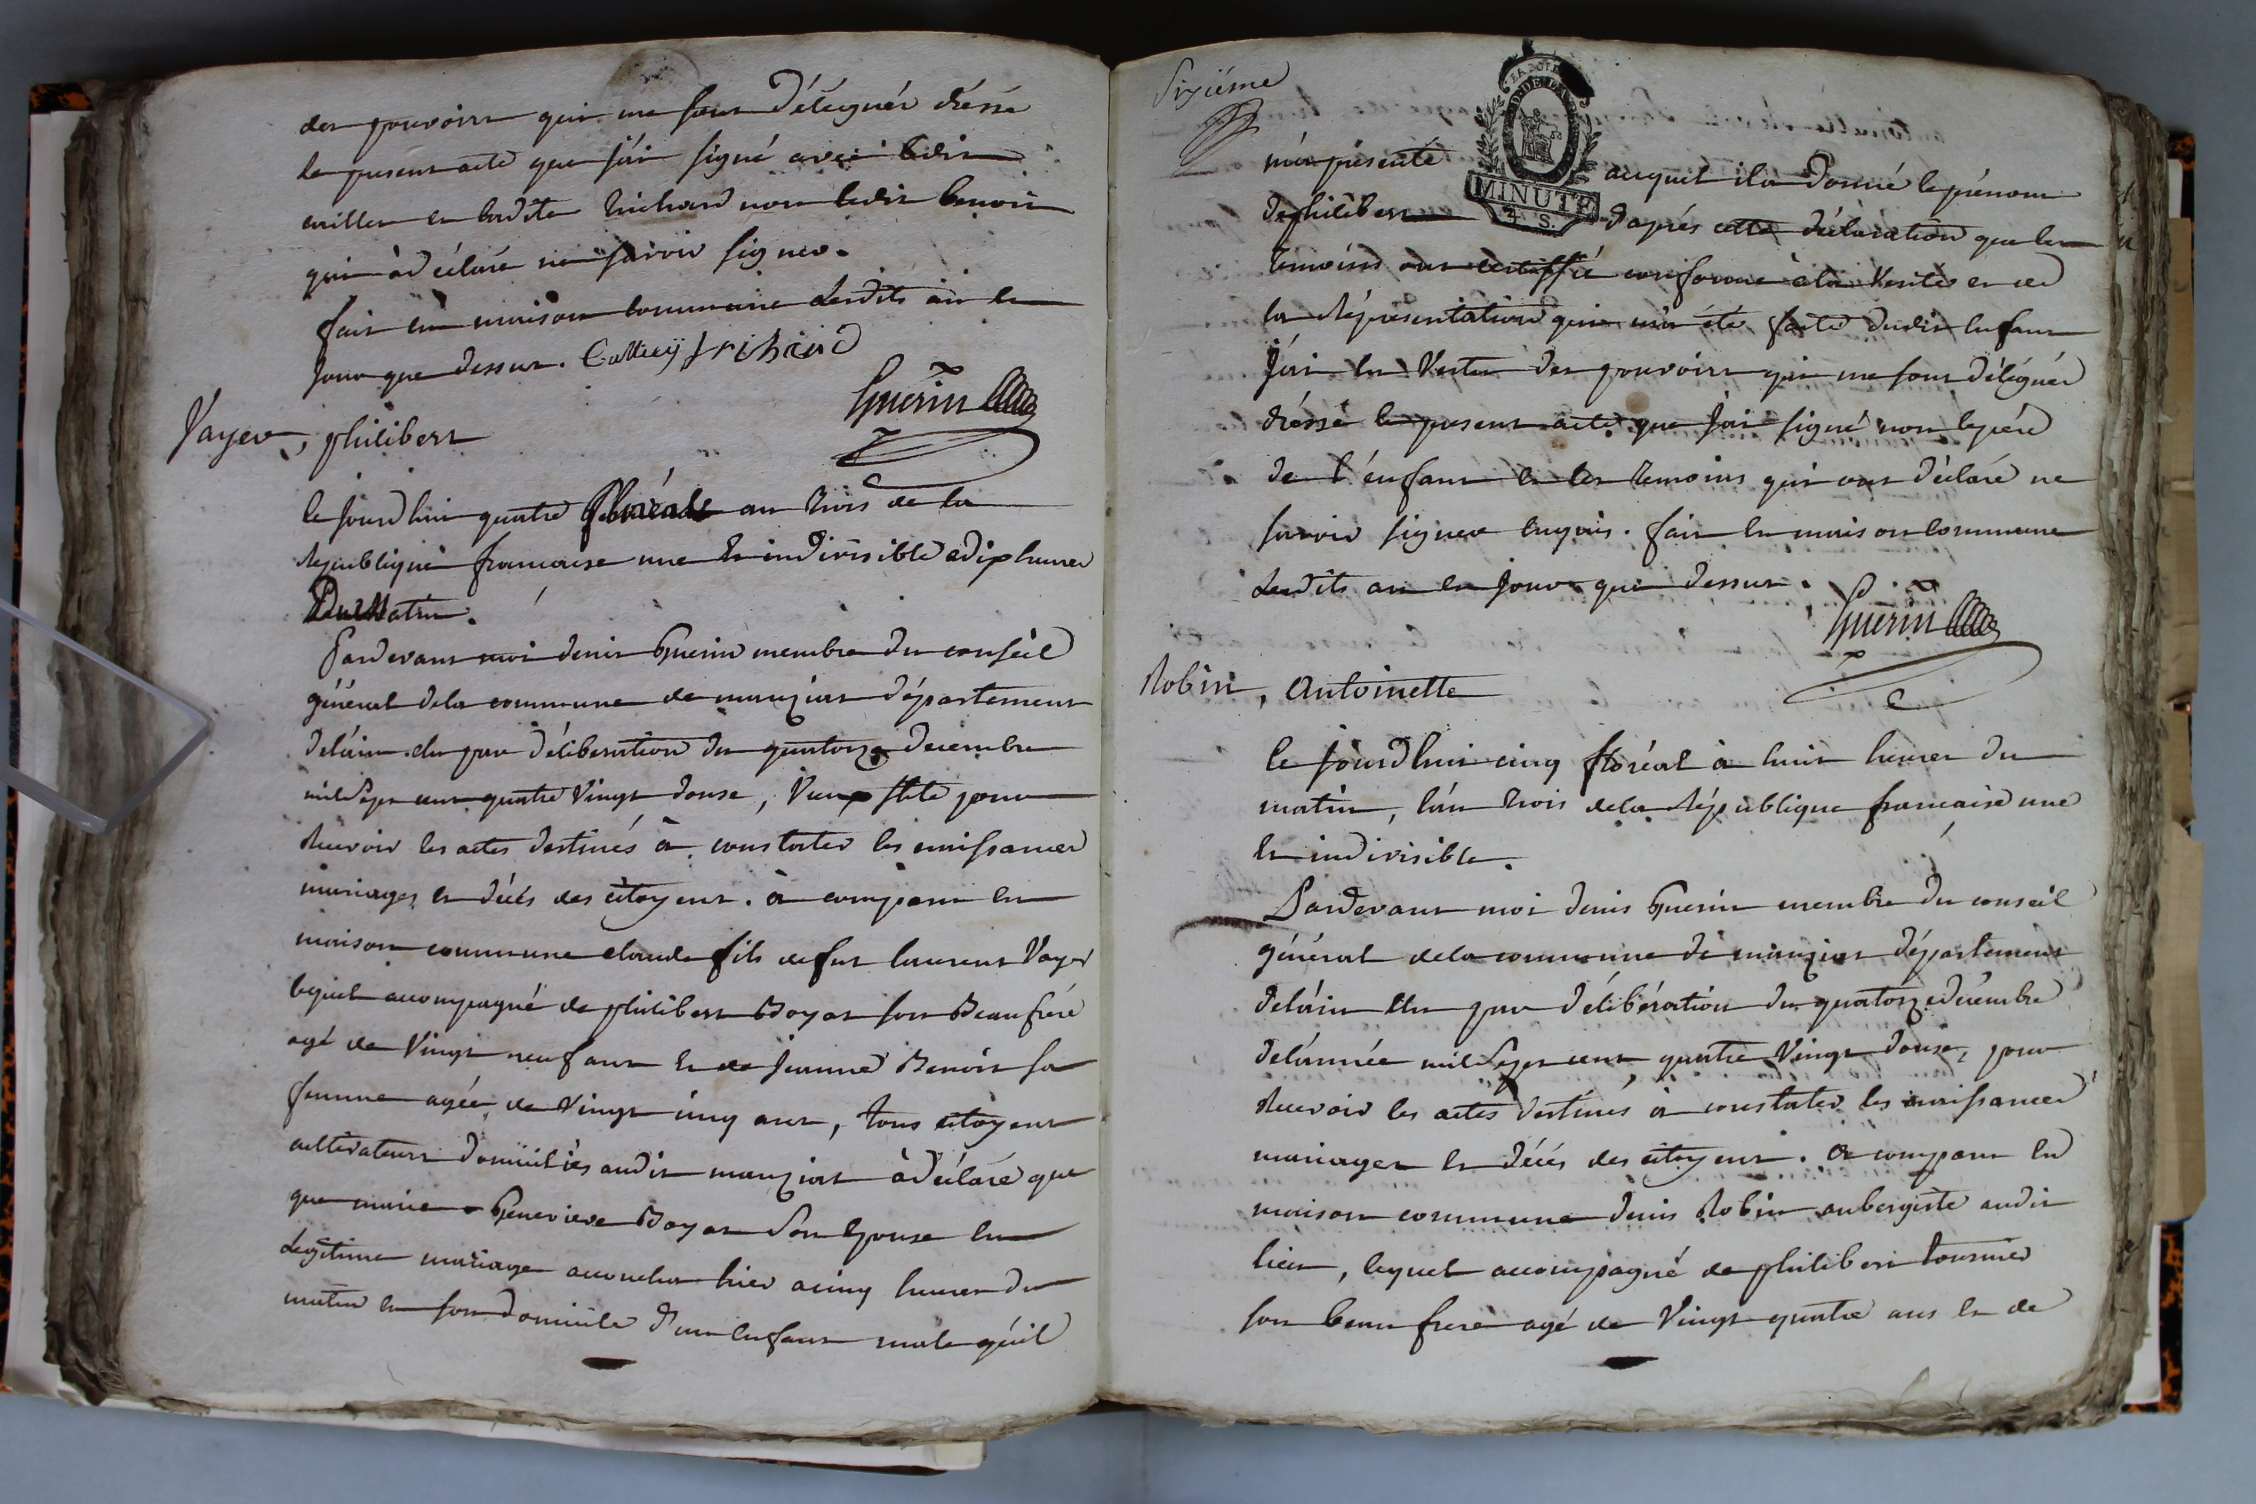 des pouvoirs qui me sont délégués dréssé
le present acte que j'ai signé avec ledit
millet et ladite Richard non ledit benoit
qui à déclaré ne savoir signer.
fait en maison commune desdits an et
jour que dessus. f richard
Guerin
Vayer, philibert
le jourdhui quatre floréal an trois de la
république francaise une et indivisible a dix heures
Du Matin.
Pardevant moi denis Guerin membre du conseil
général dela commune de manziat département
delàin elu par délibération du quatorze decembre
mil sept cent quatre vingt douse, pour
recevoir les actes destinés à constater les naissances
mariages et décés des citoyens. à comparu en
maison commune claude fils de fut laurent Vayer
lequel accompagné de philibert Boyat son Beaufrére
agé de vingt neuf ans et de jeanne Benoit sa
femme agée de vingt cinq ans, tous citoyens
cultivateurs domiciliés audit manziat à déclaré que
que marie Genevieve Boyat son epouse en
legitime mariage accoucha hier a cinq heures du
matin en son domicile d'un enfant male qu'il
Sixiéme
LA LOI
MINUTE
4 S.
m'a présenté auquel il a donné le prénom
de philibert d'aprés cette déclaration que les
temoins ont certiffié conforme à la verité et
la réprésentation qui m'a été faite dudit enfant
j'ai en vertu des pouvoirs qui me sont délégués
dréssé le present acte que j'ai signé non le pére
de l'enfant et les temoins qui ont déclaré ne
savoir signer enquis. fait en maison commune
desdits an et jour que dessus.
Guerin
Robin, Antoinette
le jourdhui cinq floréal à huit heures du
matin, l'an trois dela république francaise une
et indivisible.
Pardevant moi denis Guerin membre du conseil
général dela commune de manziat département
delàin elu par délibération du quatorze décembre
delànnée mil sept cent quatre vingt douse, pour
recevoir les actes destinés à constater les naissances
mariages et décés des citoyens. a comparu en
maison commune denis Robin aubergiste audit
lieu, lequel accompagné de philibert tournier
son beau frere agé de vingt quatre ans et de